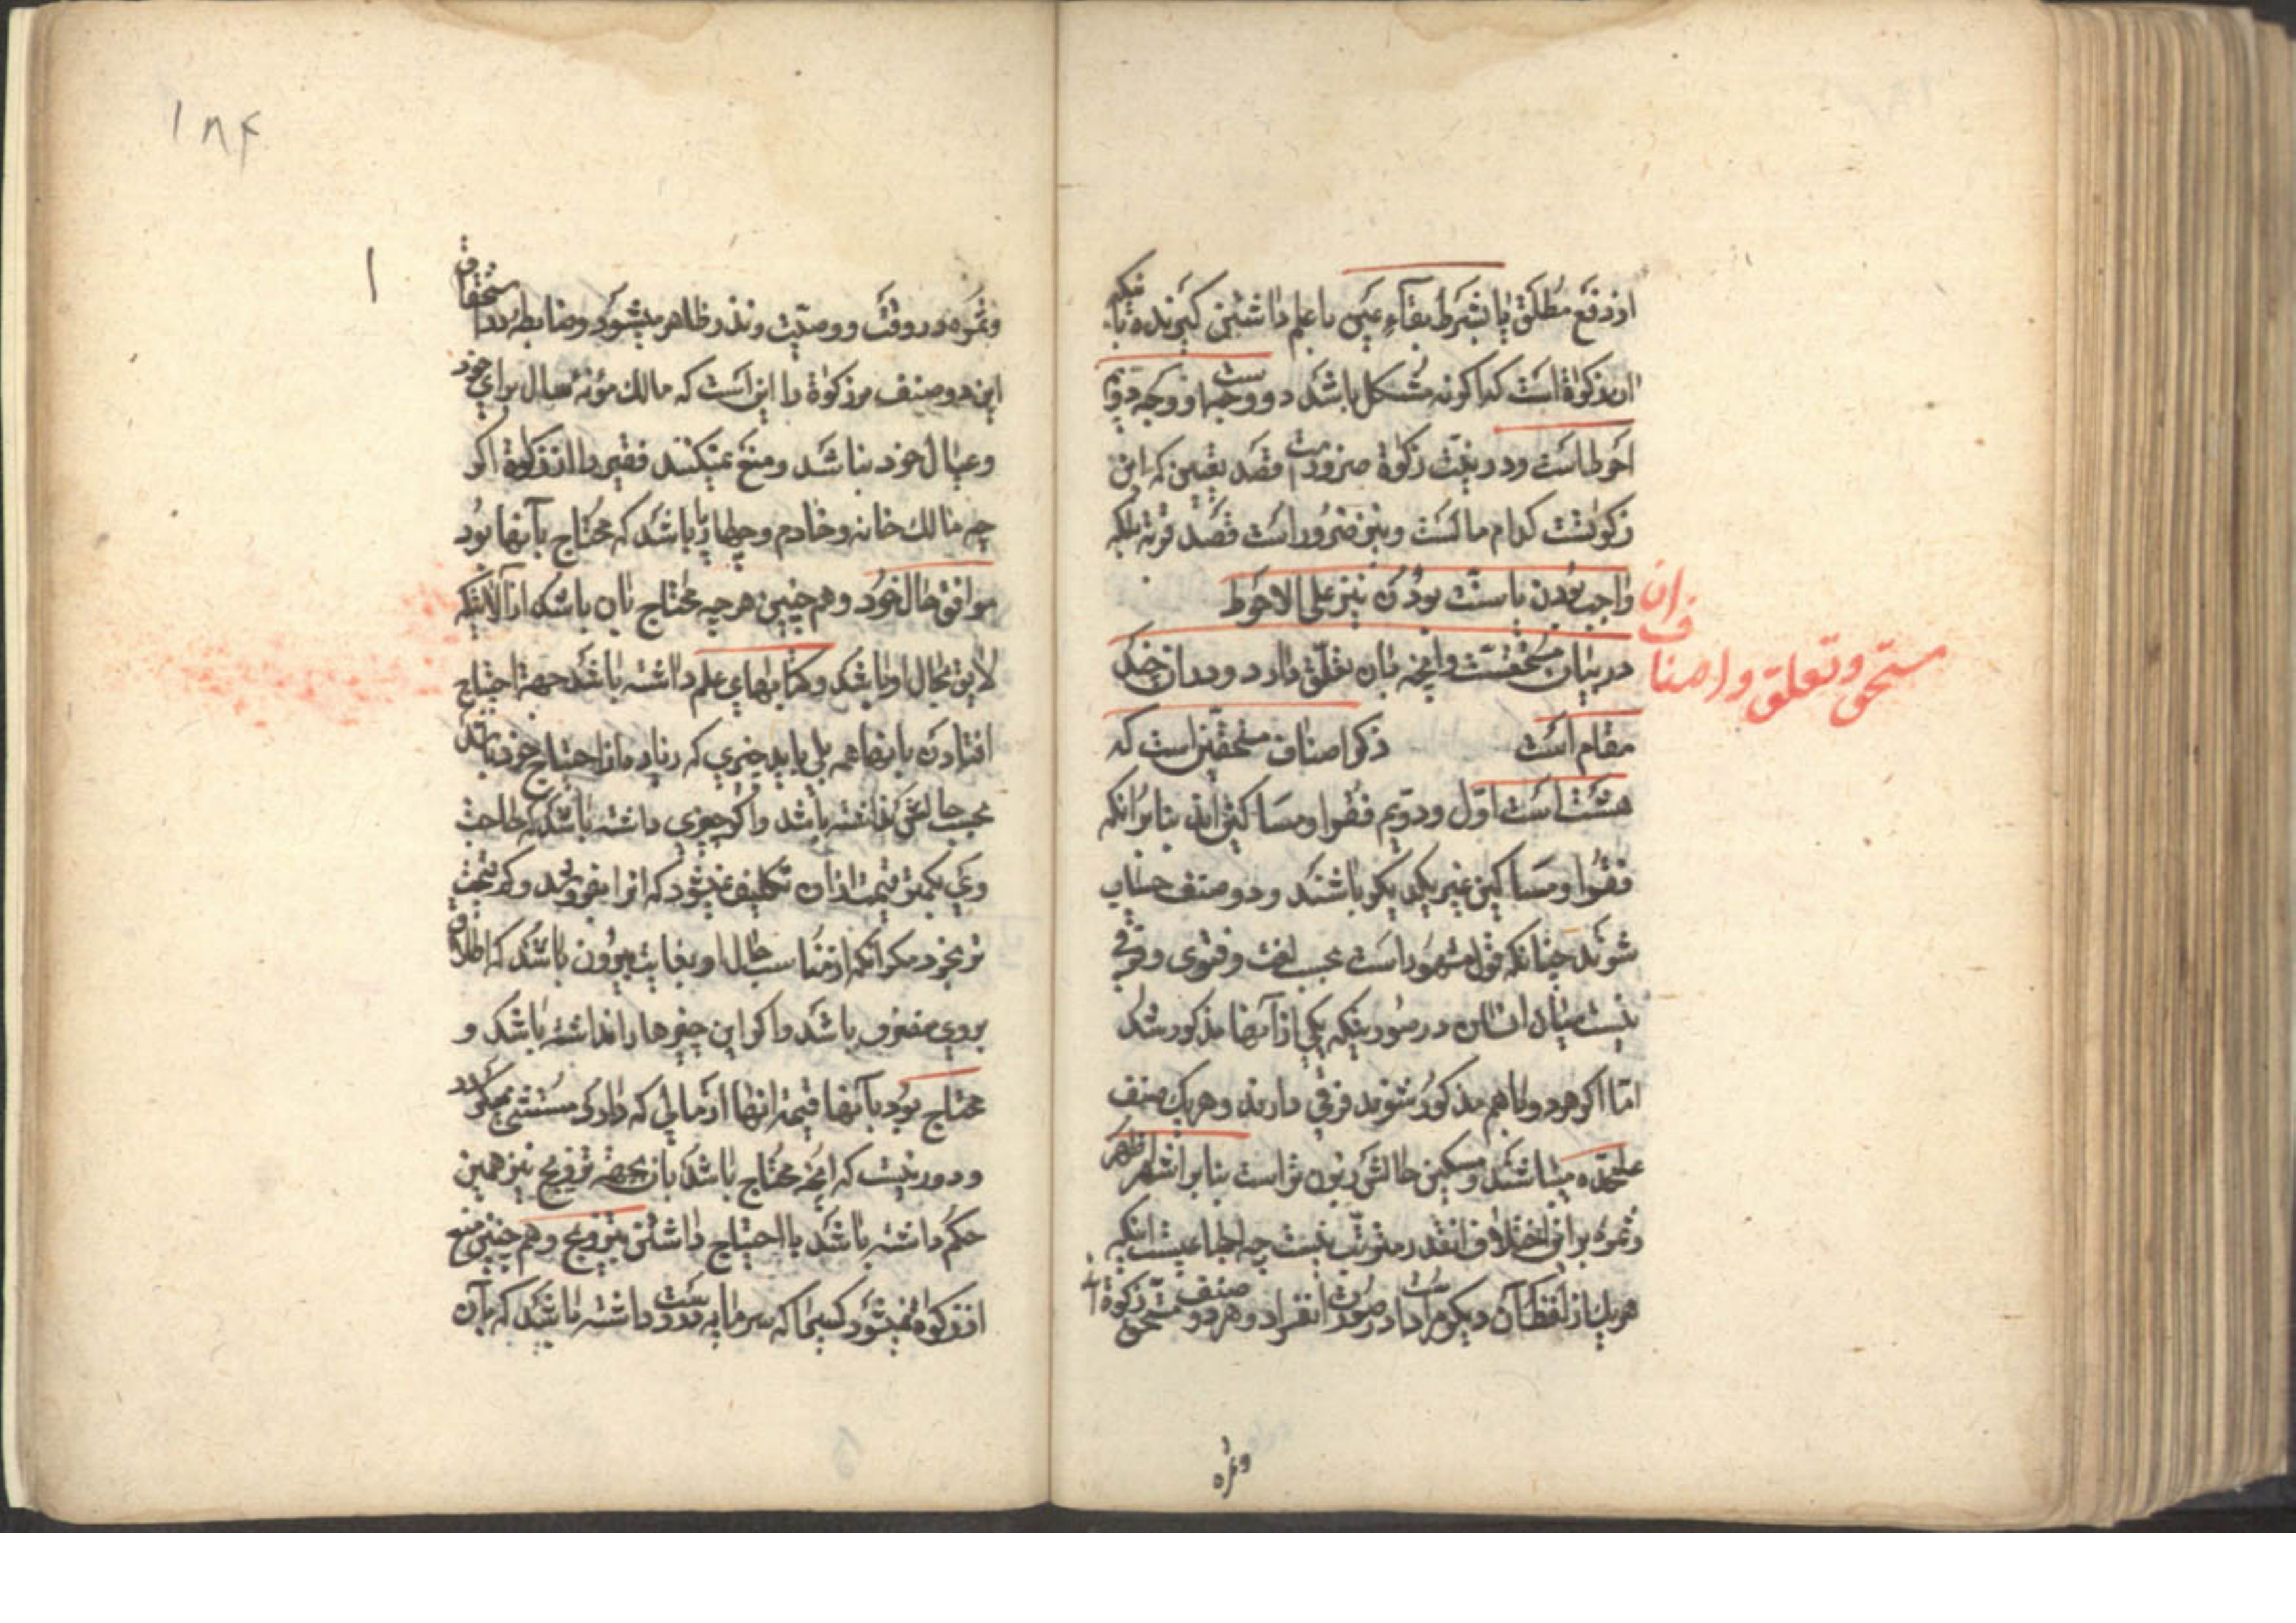 از دفع مطلق یا بشرط بقاء عین با علم داشتن کیرنده باینکه
این زکوة است که اکر نه مشکل باشد دو وجه است و وجه دویم
احوط است و در نیت زکوة ضرور است قصد تعیین که این
زکوتست کدام مالست و نیز ضرور است قصد قربة بلکه
واجب بودن یا سنت بودن نیز علی الاحوط
در بیان مستحقست و انچه بان تعلق دارد و در ان چند
مقام است ذکر اصناف مستحقین است که
هشت است اول و دویم فقرا و مساکین اند بنابرانکه
فقرا و مساکین غیر یکدیکر باشند و دو صنف حساب
شوند چنانکه قول مشهور است بحسب لغت و فتوی و فرقی
نیست میان ایشان در صورتیکه یکی از آنها مذکور شد
امّا اکر هر دو با هم مذکور شوند فرقی دارند و هر یک صنف
علیحده میباشند و مسکین حالش زبون تر است بنابر اشهر اظهر
و ثمره بر این اختلاف انقدر مترتب نیست چه اجماعیست اینکه
هر یک از لفظ آن دیکر مراد است در صورت انفراد و هر دو صنف مستحق زکوة اند
وثمره
ان
مستحق و تعلق و اصناف
۱۸۴
۱
وثمره در وقف و وصیّت و نذر ظاهر میشود و ضابطه در استحقاق
این دو صنف مر زکوة را این است که مالک مؤنه سال برای خود
و عیال خود نباشد و منع نمیکند فقیر را از زکوة اکر
چه مالک خانه و خادم و چهارپا باشد که محتاج بآنها بود
موافق حال خود و هم چنین هر چه محتاج بان باشد از آلاتیکه
لایق بحال او باشد و کتابهای علم داشته باشد جهة احتیاج
افتادن بانها همه بلی باید چیزی که زیاده از احتیاج خود باشد
بحسب حال تقی نداشته باشد و اکر چیزی داشته باشد که حاجت
وی بکمتر قیمت از ان تکلیف نمیشود که انرا بفروشد و کم قیمت
تر بخرد مکر انکه از مناسب حال او بغایت بیرون باشد که اطلاق
بروی منصرف باشد و اکر این چیزها را نداشته باشد و
محتاج بود بآنها قیمة انها از مالی که دارد مستثنی میکردد
و دور نیست که انچه محتاج باشد بان بجهة تزویج نیز همین
حکم داشته باشد با احتیاج داشتن بتزویج و هم چنین منع
از زکوة نمیشود کسیرا که سرمایه در دست داشته باشد که بآن